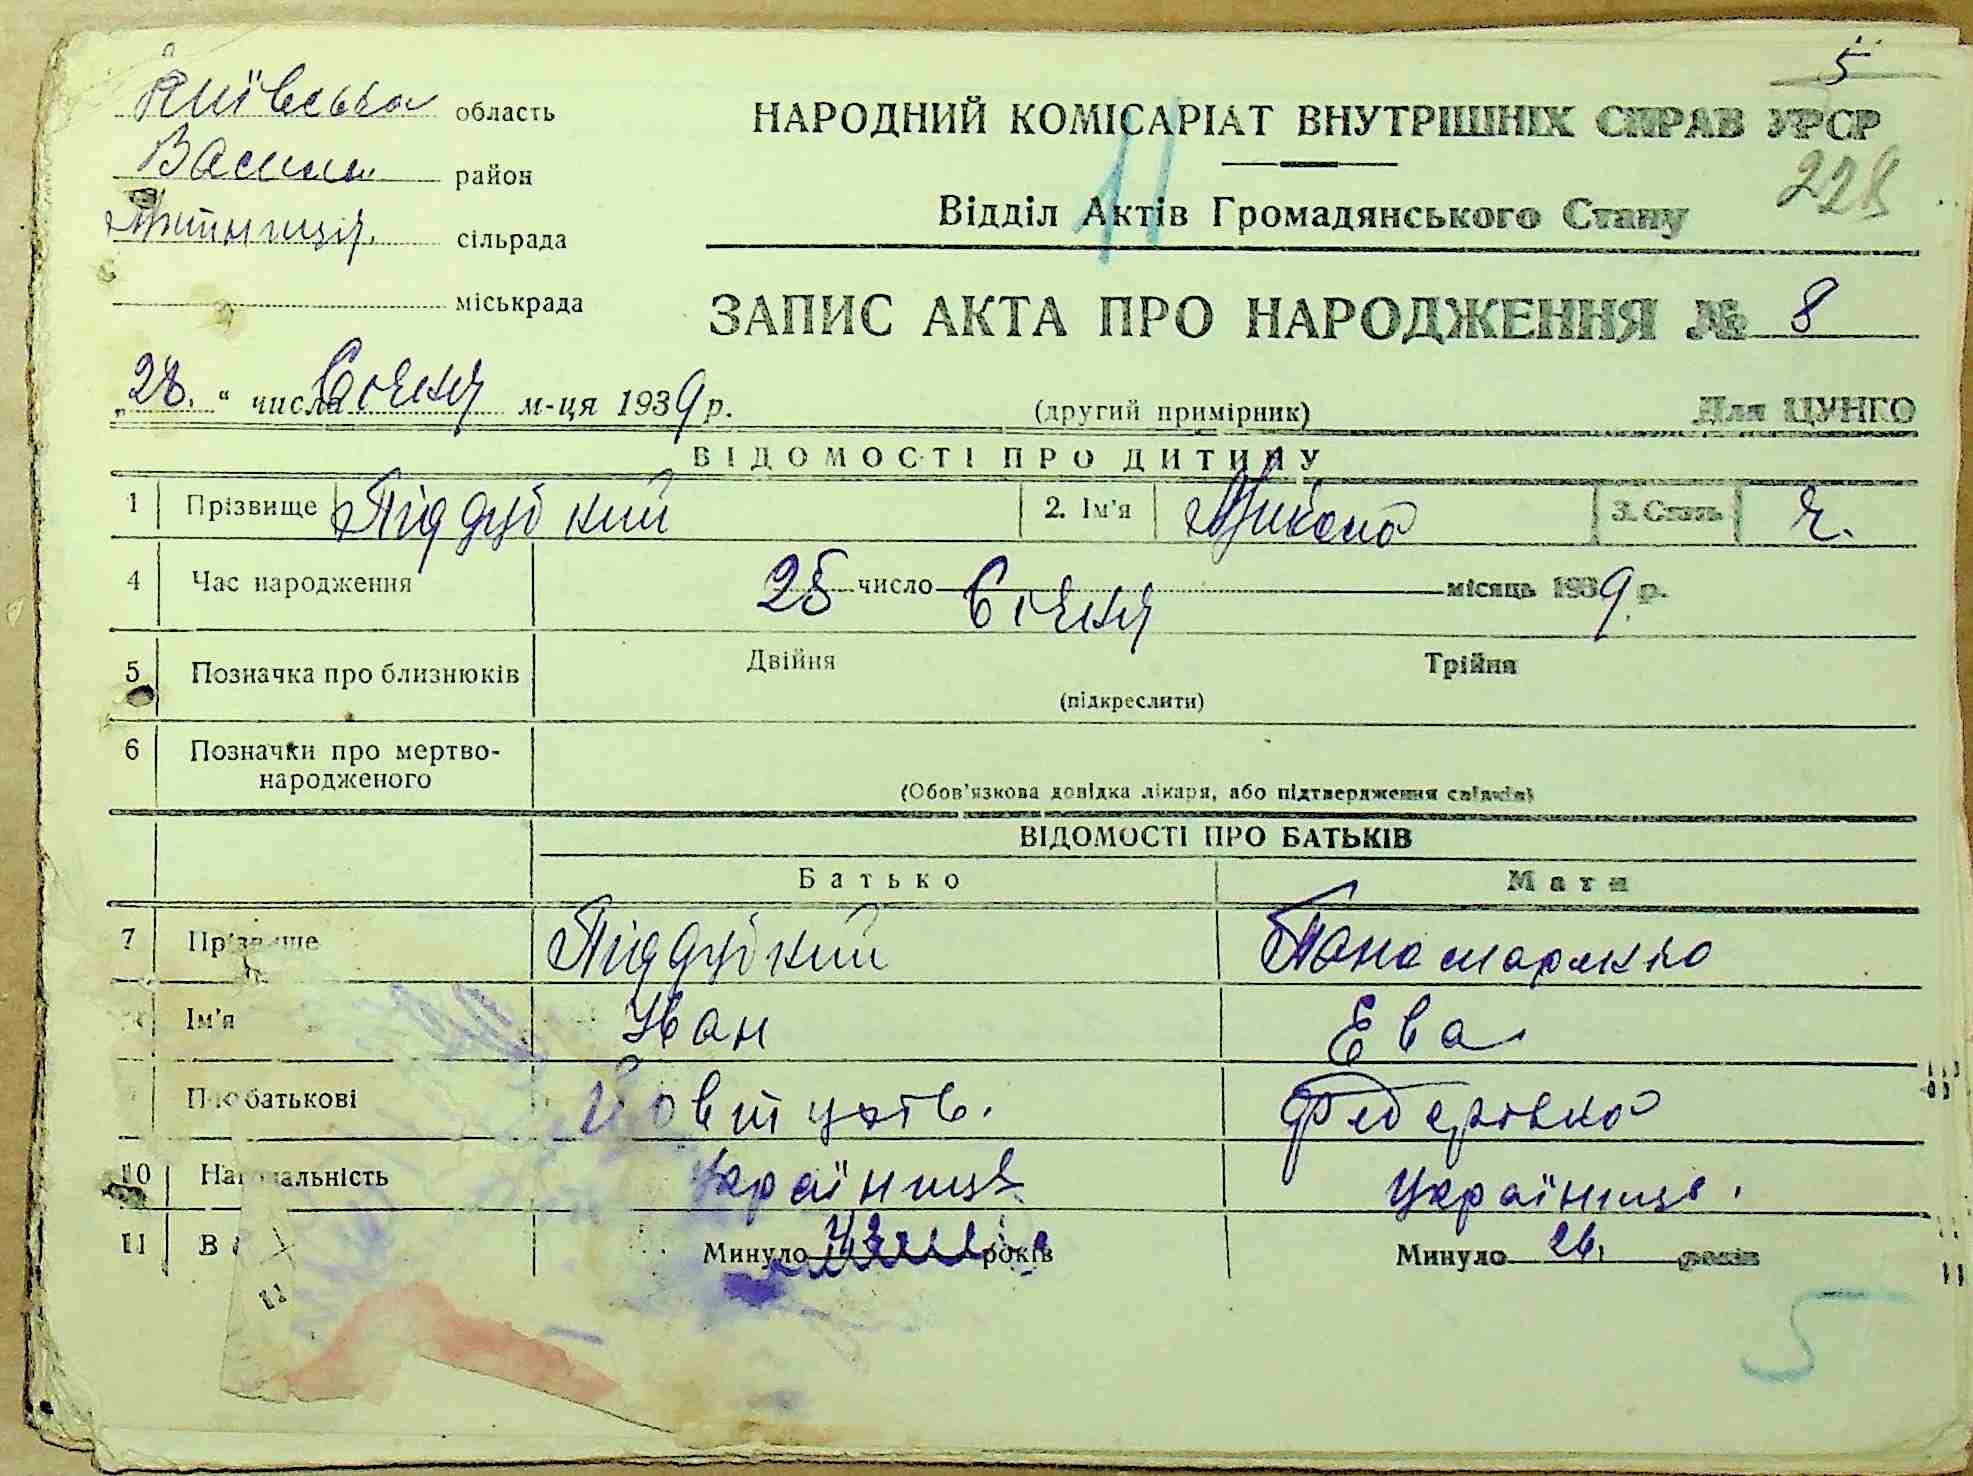 5
Київська область
НАРОДНИЙ КОМІСАРІАТ ВНУТРІШНІХ СПРАВ УРСР
Васильк. район
228
11
Відділ Актів Громадянського Стану
сільрада
міськрада
ЗАПИС АКТА ПРО НАРОДЖЕННЯ № 8
„28.“ числа Січня м-ця 1939 р.
(другий примірник)
Для ЦУНГО
ВІДОМОСТІ ПРО ДИТИНУ
1 Прізвище Піддубний 2. Ім'я Микола 3. Стать ч.
4 Час народження 25 число Січня місяць 1939 р.
5 Позначка про близнюків Двійня Трійня
(підкреслити)
6 Позначки про мертво-
народженого
(Обов'язкова довідка лікаря, або підтвердження свідків)
ВІДОМОСТІ ПРО БАТЬКІВ
Батько Мати
7 Прізвище Піддубний Панамаренко
Ім'я Іван Ева
По батькові Федорівна
10 Національність Українець Українка.
11 В Минуло років Минуло 26. років
11
5